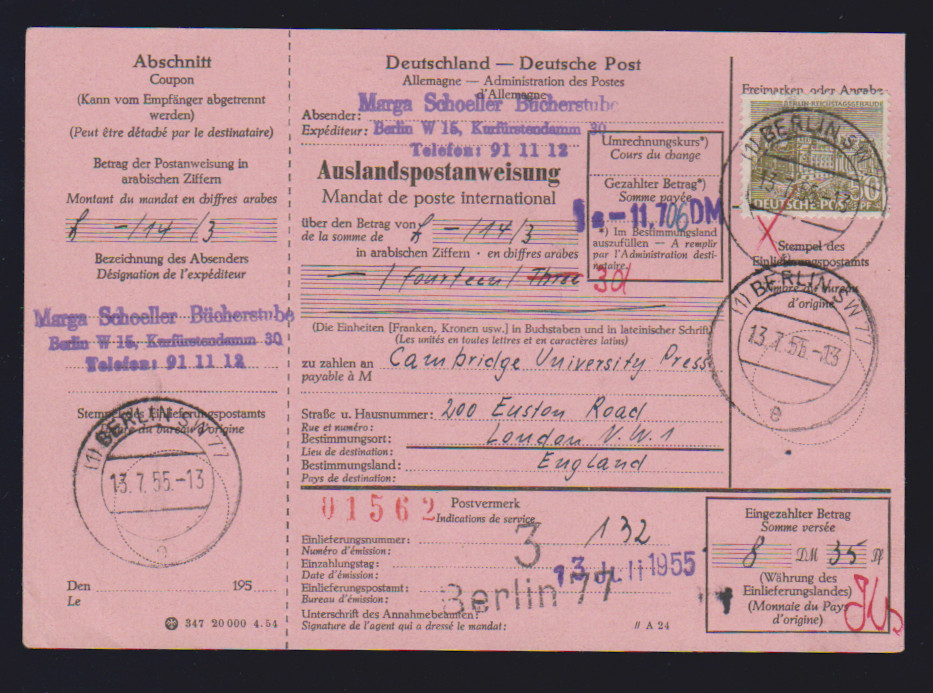 Abschnitt
Coupon
(Kann vom Empfänger abgetrennt
werden)
(Peut être détaché par le destinataire)
Betrag der Postanweisung in
arabischen Ziffern
Montant du mandat en chiffres arabes
£ -/14/3
Bezeichnung des Absenders
Désignation de l'expéditeur
Marga Schoeller Bücherstube
Berlin W 15, Kurfürstendamm 30
Telefon: 91 11 12
Stempel des Einlieferungspostamts
Timbre du bureau d'origine
(1) BERLIN SW 77
13.7.55.-13
e
Den 195
Le
347 20 000 4.54
Deutschland — Deutsche Post
Allemagne — Administration des Postes
d'Allemagne
Absender: Marga Schoeller Bücherstube
Expéditeur: Berlin W 15, Kurfürstendamm 30
Telefon: 91 11 12
Auslandspostanweisung
Mandat de poste international
Umrechnungskurs*)
Cours du change
Gezahlter Betrag*)
Somme payée
11.706 DM
*) Im Bestimmungsland
auszufüllen — A remplir
par l'Administration desti-
nataire.
über den Betrag von £ -/14/3
de la somme de
in arabischen Ziffern · en chiffres arabes
— / fourteen / Three
3d
(Die Einheiten [Franken, Kronen usw.] in Buchstaben und in lateinischer Schrift)
(Les unités en toutes lettres et en caractères latins)
zu zahlen an Cambridge University Press
payable à M
Straße u. Hausnummer: 200 Euston Road
Rue et numéro:
Bestimmungsort: London N.W.1
Lieu de destination:
Bestimmungsland: England
Pays de destination:
Freimarken oder Angabe
BERLIN REICHSTAGSGEBÄUDE
DEUTSCHE POST
PF
(1) BERLIN SW
Stempel des
Einlieferungspostamts
Timbre du bureau
d'origine
(1) BERLIN SW 77
13.7.55.-13
e
01562
Postvermerk
Indications de service
3
Einlieferungsnummer: 132
Numéro d'émission:
Einzahlungstag: 13. Juli 1955
Date d'émission:
Einlieferungspostamt: Berlin 77
Bureau d'émission:
Unterschrift des Annahmebeamten:
Signature de l'agent qui a dressé le mandat:
// A 24
Eingezahlter Betrag
Somme versée
8 DM 35 Pf
(Währung des
Einlieferungslandes)
(Monnaie du Pays
d'origine)